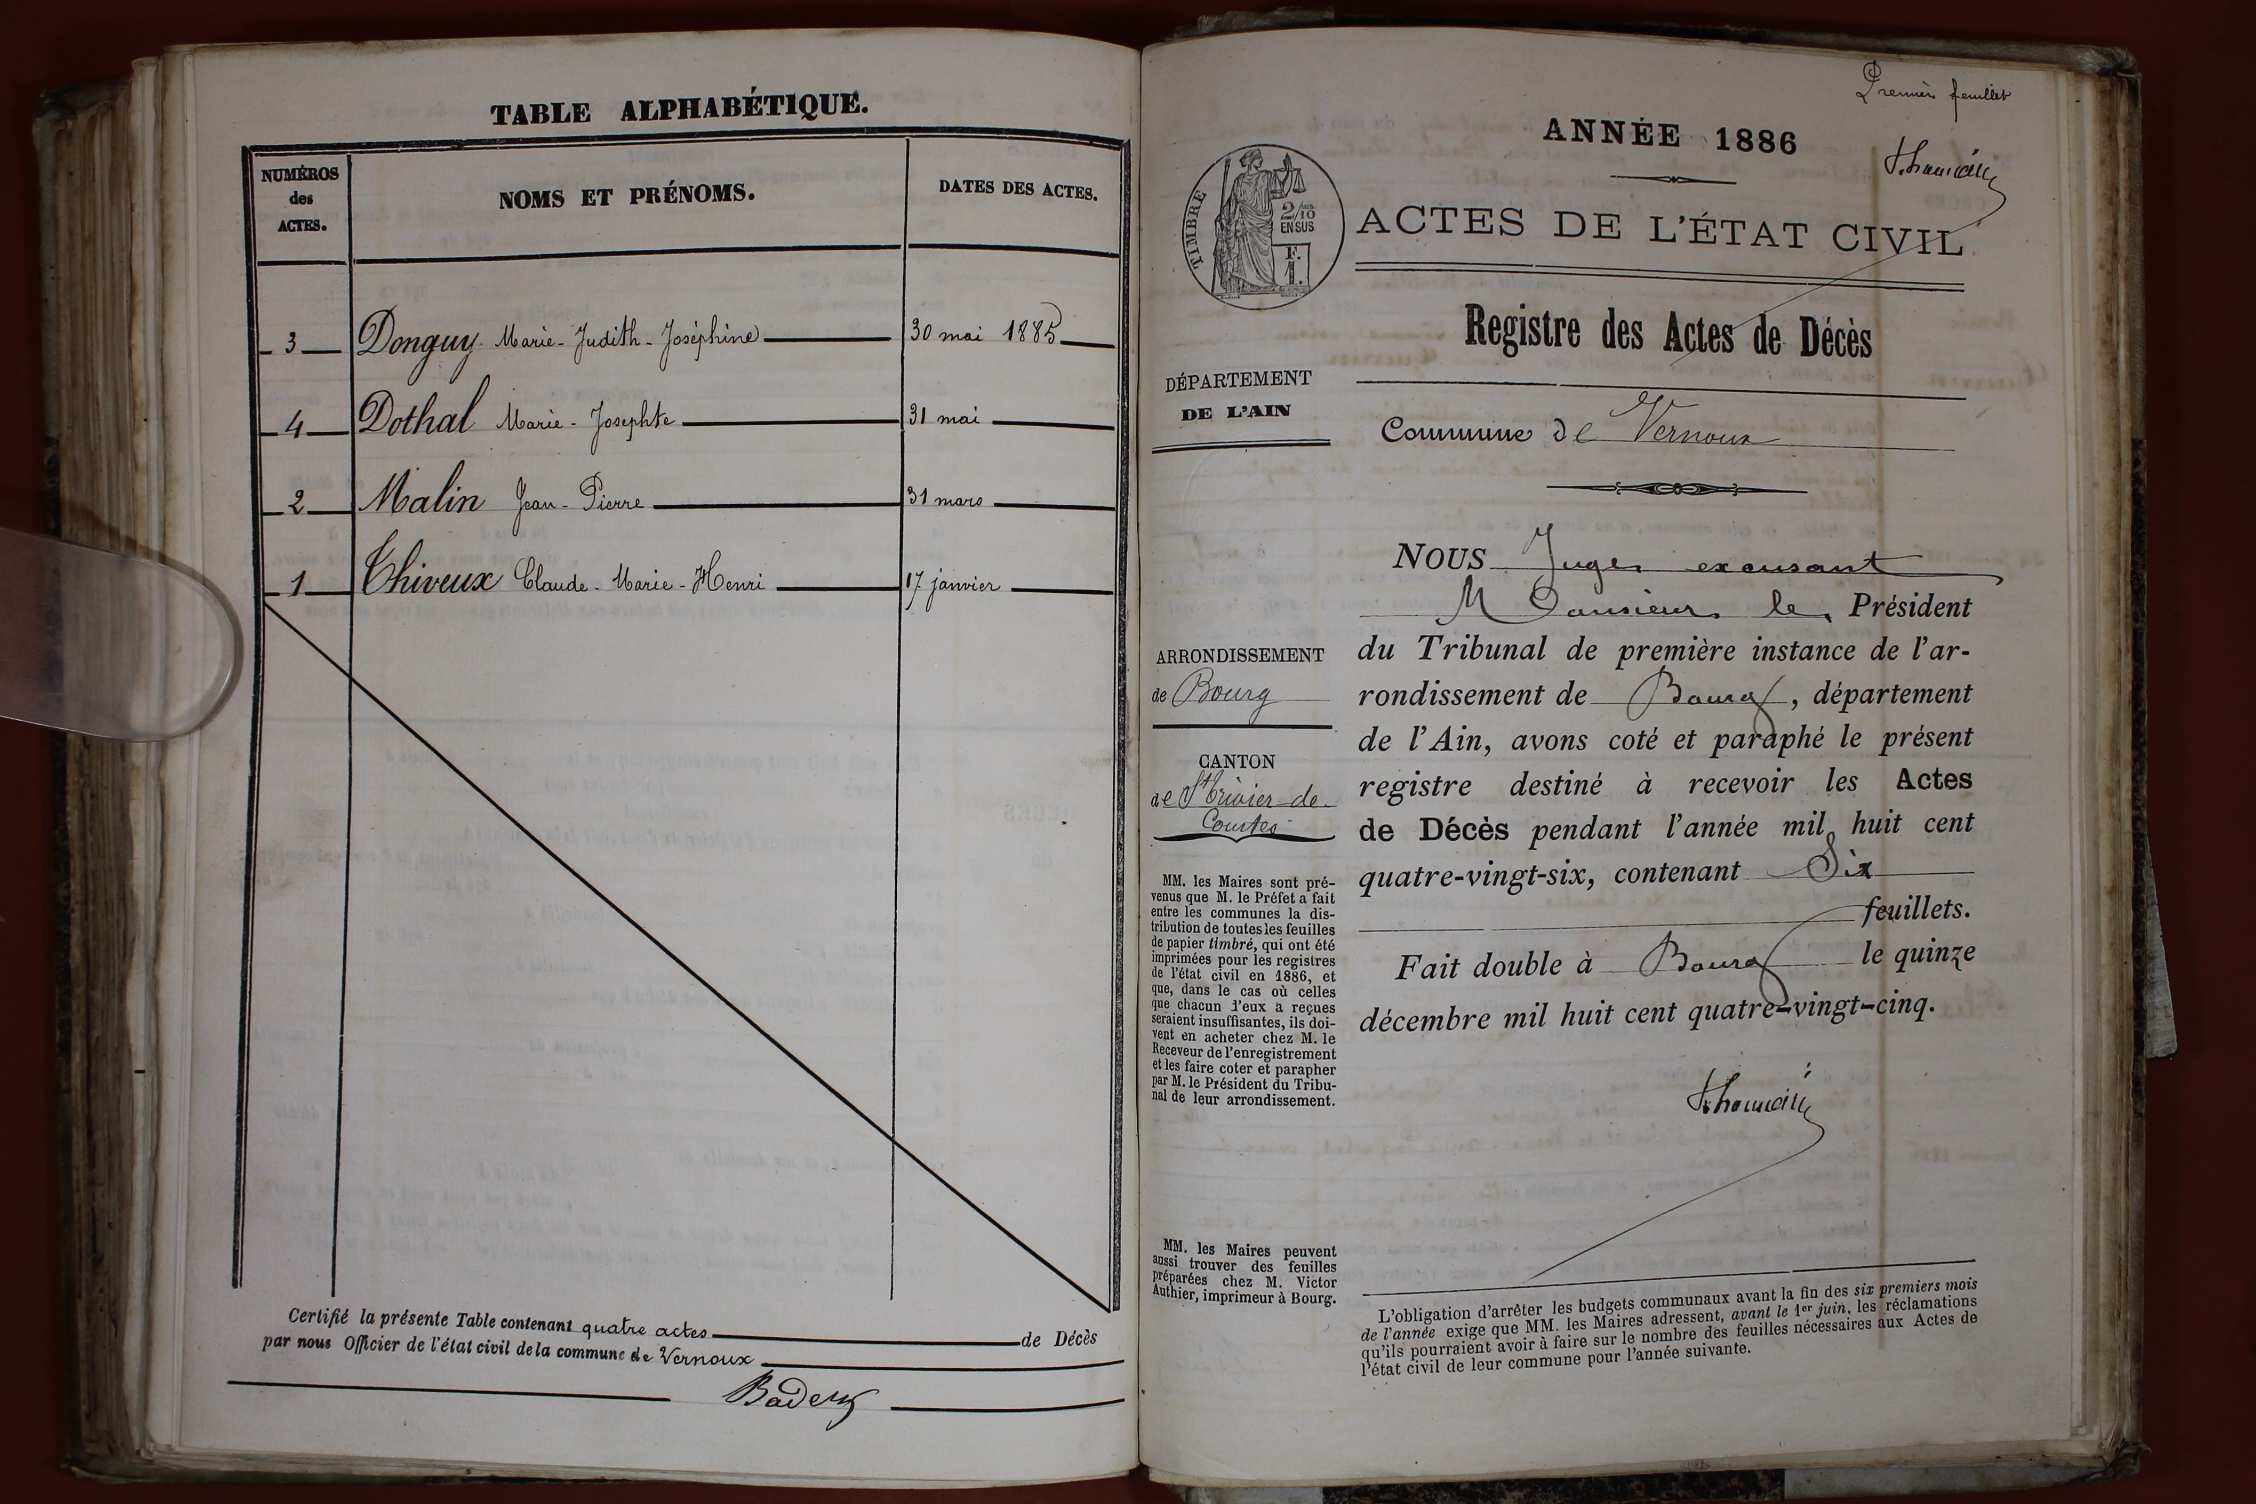 TABLE ALPHABÉTIQUE.
NUMÉROS
des
ACTES.
NOMS ET PRÉNOMS.
DATES DES ACTES.
3 Donguy Marie-Judith-Joséphine 30 mai 1885
4 Dothal Marie-Josephte 31 mai
2 Malin Jean-Pierre 31 mars
1 Thiveux Claude-Marie-Henri 17 janvier
Certifié la présente Table contenant quatre actes de Décès
par nous Officier de l'état civil de la commune de Vernoux
Premier feuillet
ANNÉE 1886
TIMBRE
2/10
EN SUS
F.
1.
ACTES DE L'ÉTAT CIVIL
Registre des Actes de Décès
DÉPARTEMENT
DE L'AIN
Commune de Vernoux
ARRONDISSEMENT
de Bourg
CANTON
de St Trivier de
Courtes
MM. les Maires sont pré-
venus que M. le Préfet a fait
entre les communes la dis-
tribution de toutes les feuilles
de papier timbré, qui ont été
imprimées pour les registres
de l'état civil en 1886, et
que, dans le cas où celles
que chacun d'eux a reçues
seraient insuffisantes, ils doi-
vent en acheter chez M. le
Receveur de l'enregistrement
et les faire coter et parapher
par M. le Président du Tribu-
nal de leur arrondissement.
MM. les Maires peuvent
aussi trouver des feuilles
préparées chez M. Victor
Authier, imprimeur à Bourg.
NOUS Juge excusant
Monsieur le Président
du Tribunal de première instance de l'ar-
rondissement de Bourg, département
de l'Ain, avons coté et paraphé le présent
registre destiné à recevoir les Actes
de Décès pendant l'année mil huit cent
quatre-vingt-six, contenant Six
feuillets.
Fait double à Bourg le quinze
décembre mil huit cent quatre-vingt-cinq.
L'obligation d'arrêter les budgets communaux avant la fin des six premiers mois
de l'année exige que MM. les Maires adressent, avant le 1er juin, les réclamations
qu'ils pourraient avoir à faire sur le nombre des feuilles nécessaires aux Actes de
l'état civil de leur commune pour l'année suivante.